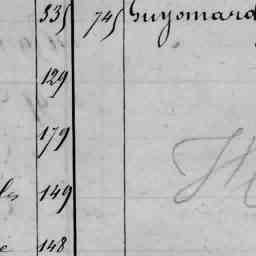 335 745 Guyomard
129
179
149
148